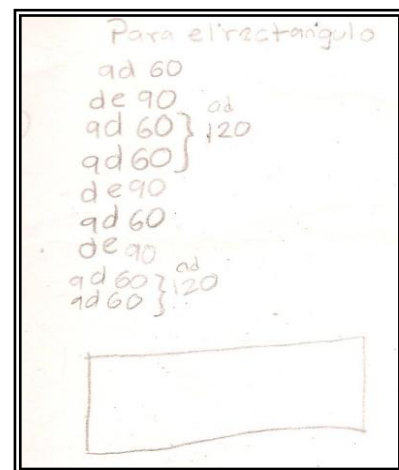 Para el rectangulo
ad 60
de 90
ad 60 } ad 120
ad 60
de 90
ad 60
de 90
ad 60 } ad 120
ad 60